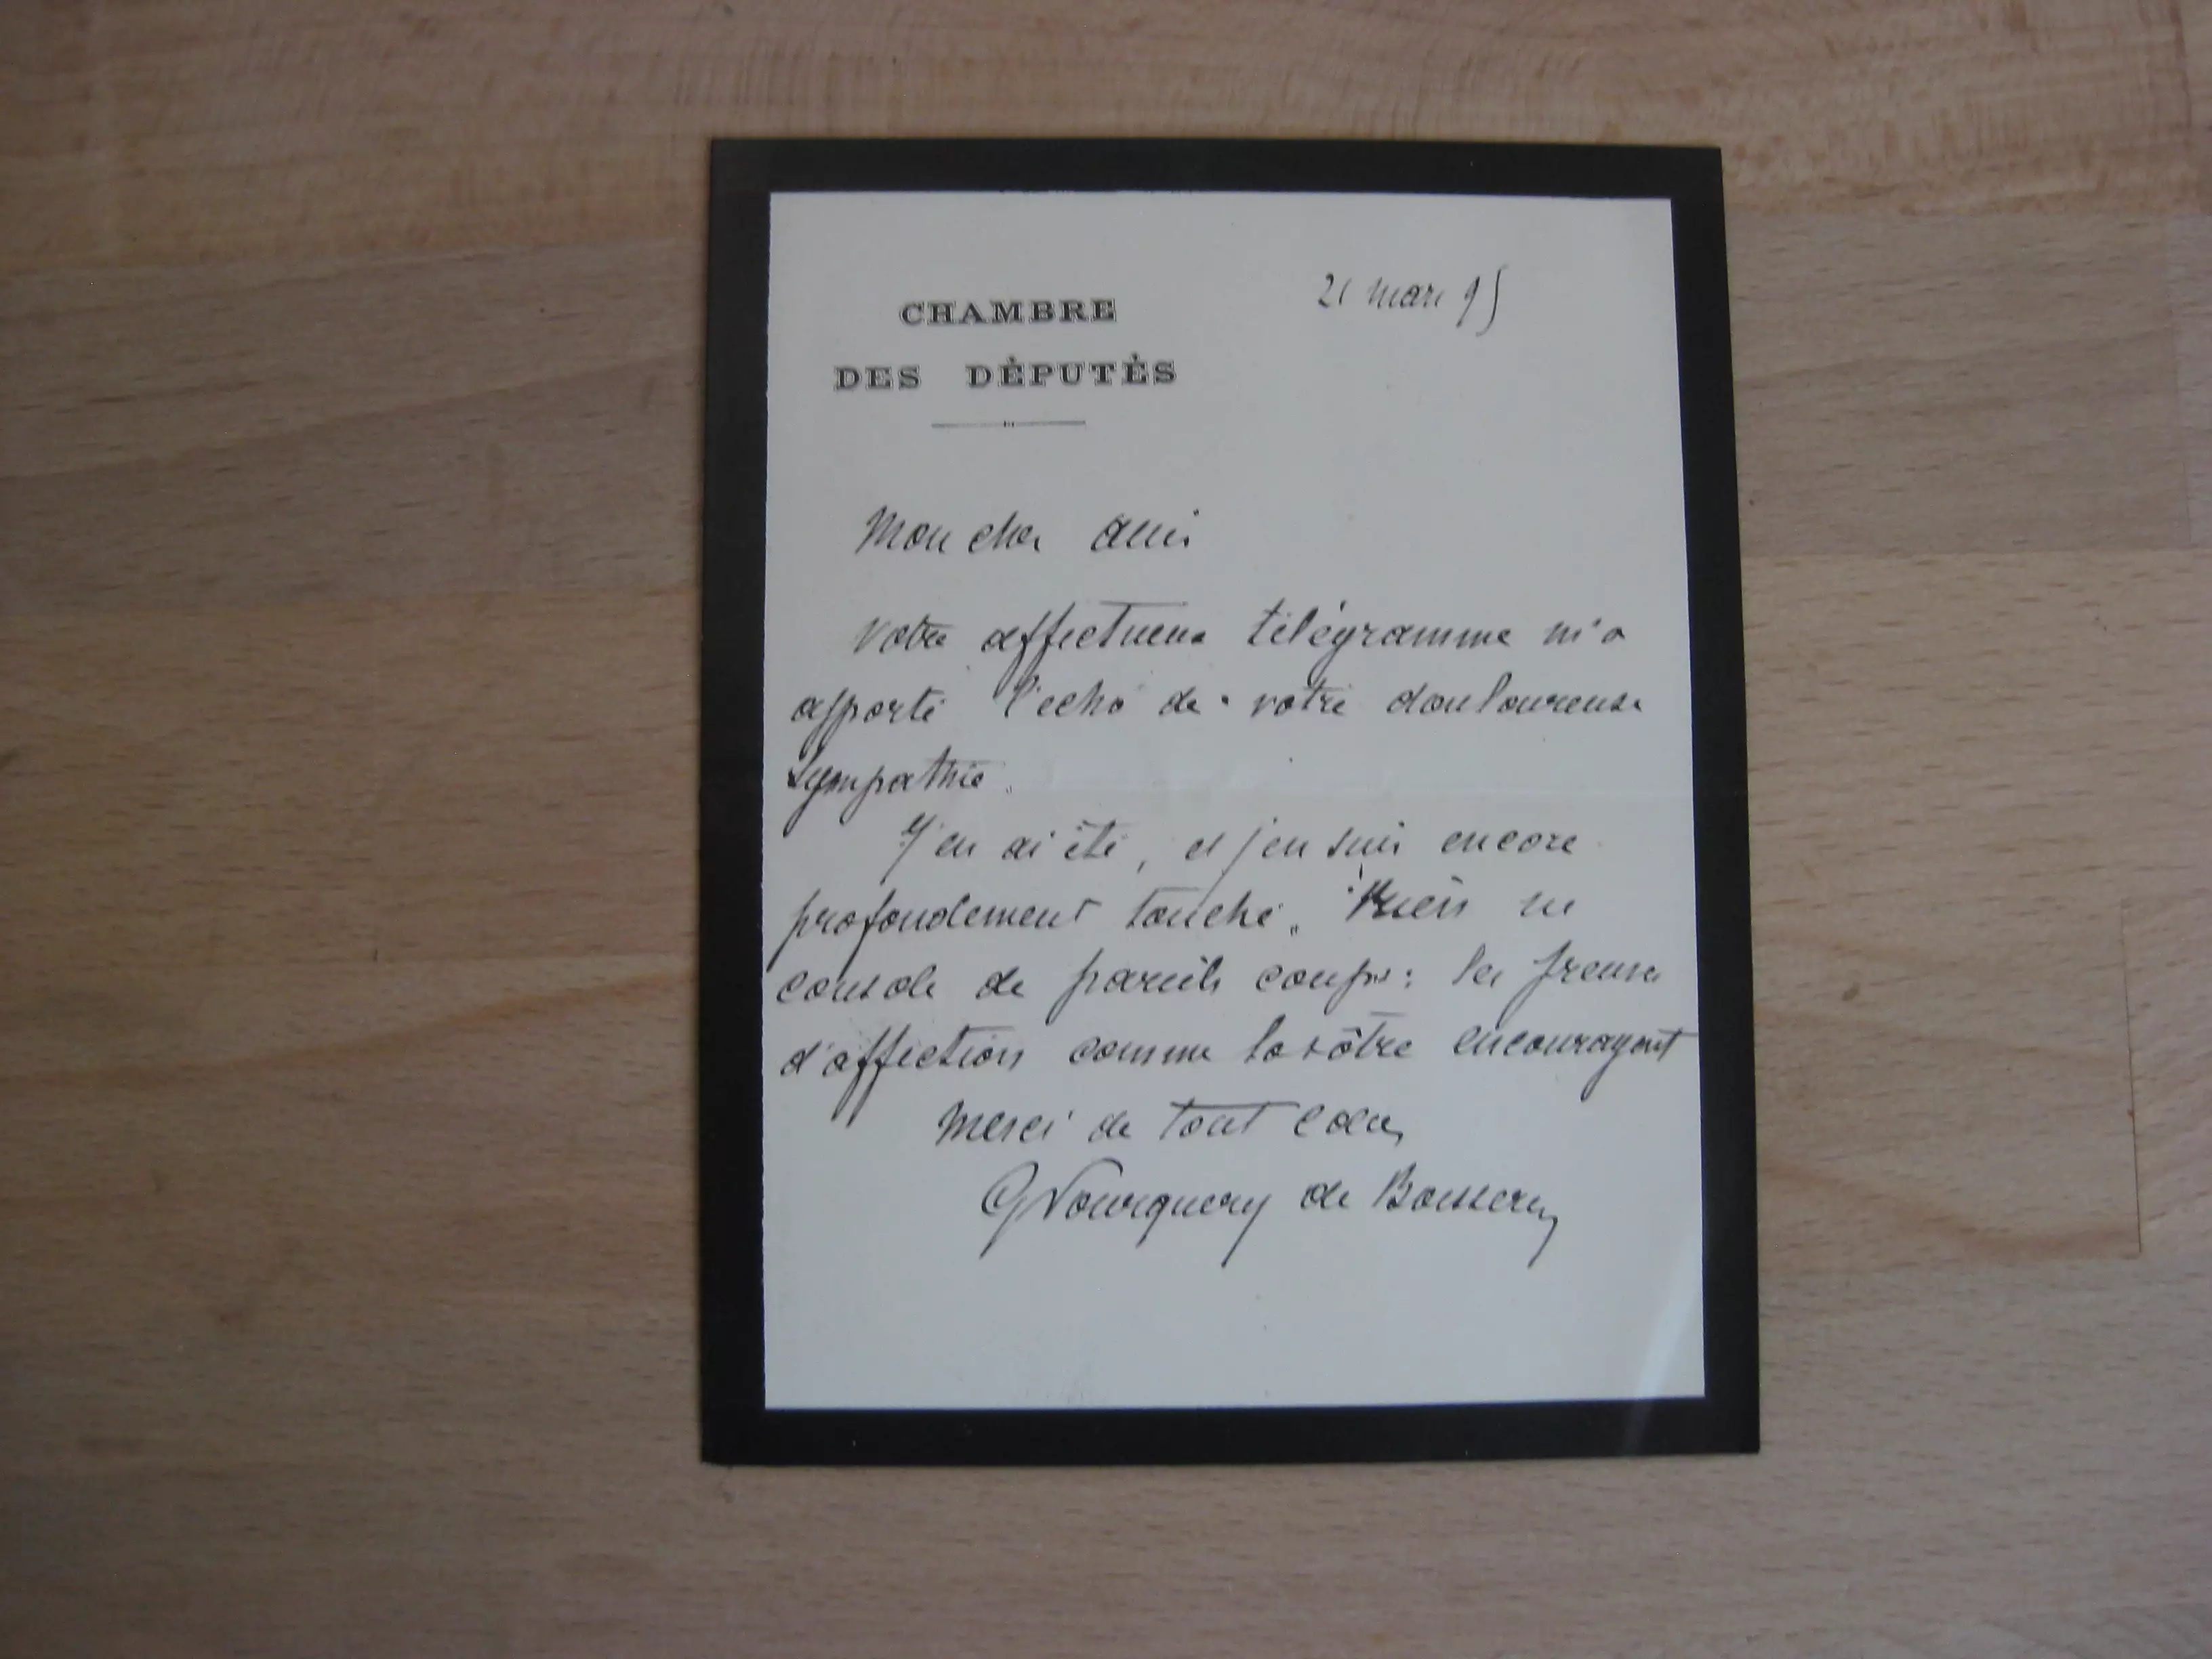 CHAMBRE
DES DÉPUTÉS
21 mars 95
Mon cher ami
Votre affectueux télégramme m'a
apporté l'echo de votre douloureuse
sympathie.
J'en ai été, et j'en suis encore
profondement touché. Rien ne
console de pareils coups : les preuves
d'affection comme la vôtre encouragent
Merci de tout coeur
G Pourquery de Boisserin